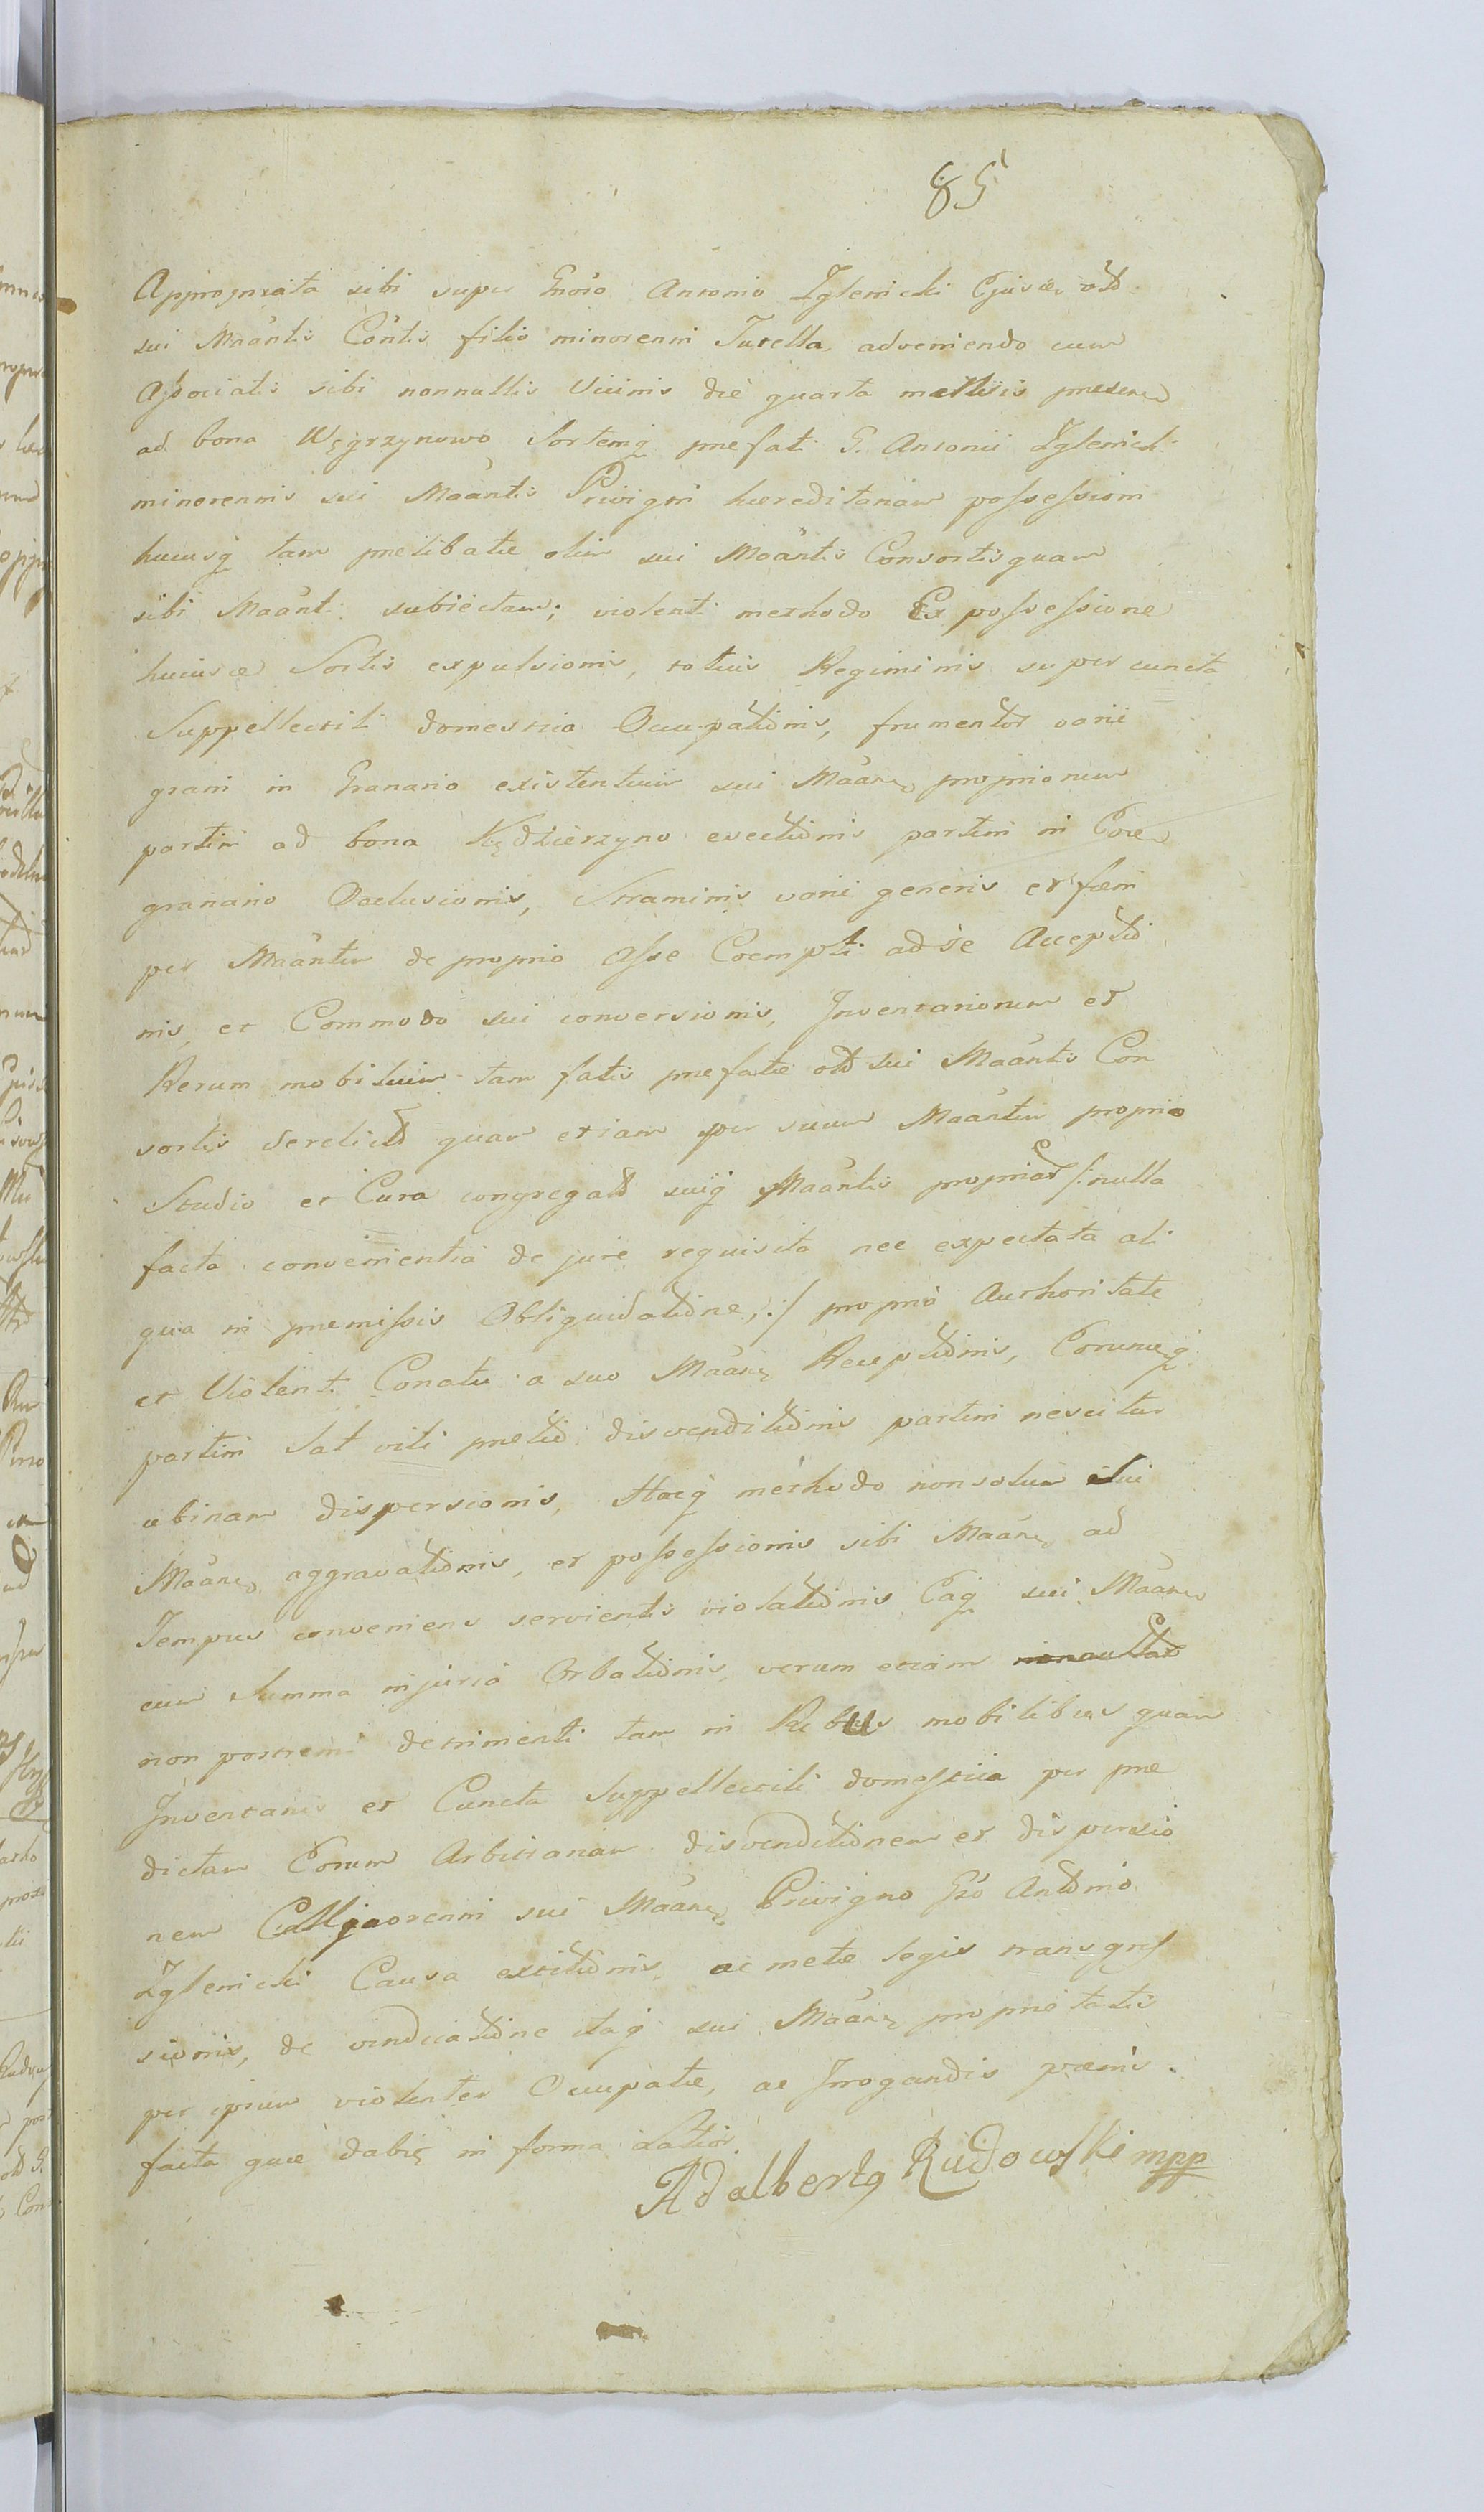 85
Appropriata sibi super Gnoso Antonio Zglenicki Ejusce olim
sui Maántis Cóntis filio minorenni Tutella adveniendo cum
Associatis sibi nonnullis Vicinis die quarta mensis presen
ad bona Węgrzynowo Sortemq prefati G. Antonii Zglenicki
minorennis sui Maántis Privigni hæreditariam possessioni
hucusq tam prelibatæ olim sui Maántis Consortis quam
sibi Maánti subiectam; violenti methodo Ex possessione
huiusce Sortis expulsionis, totius Regiminis super cuncta
Suppellectili domestica Occupationis, frumentor varii
grani in Granario existentium sui Maán propriorum
partim ad bona Kędzierzyno evectionis partim in Eoce
granario Occlusionis, Straminis varii generis et fæni
per Maántem de proprio Asse Coempti ad se Acceptio
nis, et Commodo sui conversionis, Inventariorum et
Rerum mobilium tam fatis prefatæ olim sui Maántis Con
sortis derelict quam etiam per suum Maántem proprio
Studio et Cura congregat suiq Maántis propriar /: nulla
facta convenientia de jure requisita nec expectata ali
qua in premissis Obliquidatione, :/ propria Authoritate
et Violenti Conatu a suo Maán Receptionis, Eorumq
partim Sat vili pretio disvenditionis partim nescitur
ubinam dispersionis, Hacq methodo non solum sui
Maán aggravationis, et possessionis sibi Maán ad
Tempus conveniens servientis violationis Eaq sui Maán
cum Summa injuria Orbationis, verum etiam
non postremi detrimenti tam in Rebus mobilibus quam
Inventariis et Cuncta Suppellectili domestica per præ
dictam Eorum Arbitrariam disvenditionem et dispersio
nem sui Maán Privigno Gso Antonio
Zglenicki Causa excitationis ac metæ legis transgres
sionis, de vendicatione itaq sui Maán proprietatis
per ipsum violenter Occupatæ, ac Irrogandis pœnis
facta quæ dabit in forma Latior
Adalbertq Rudowski mpp